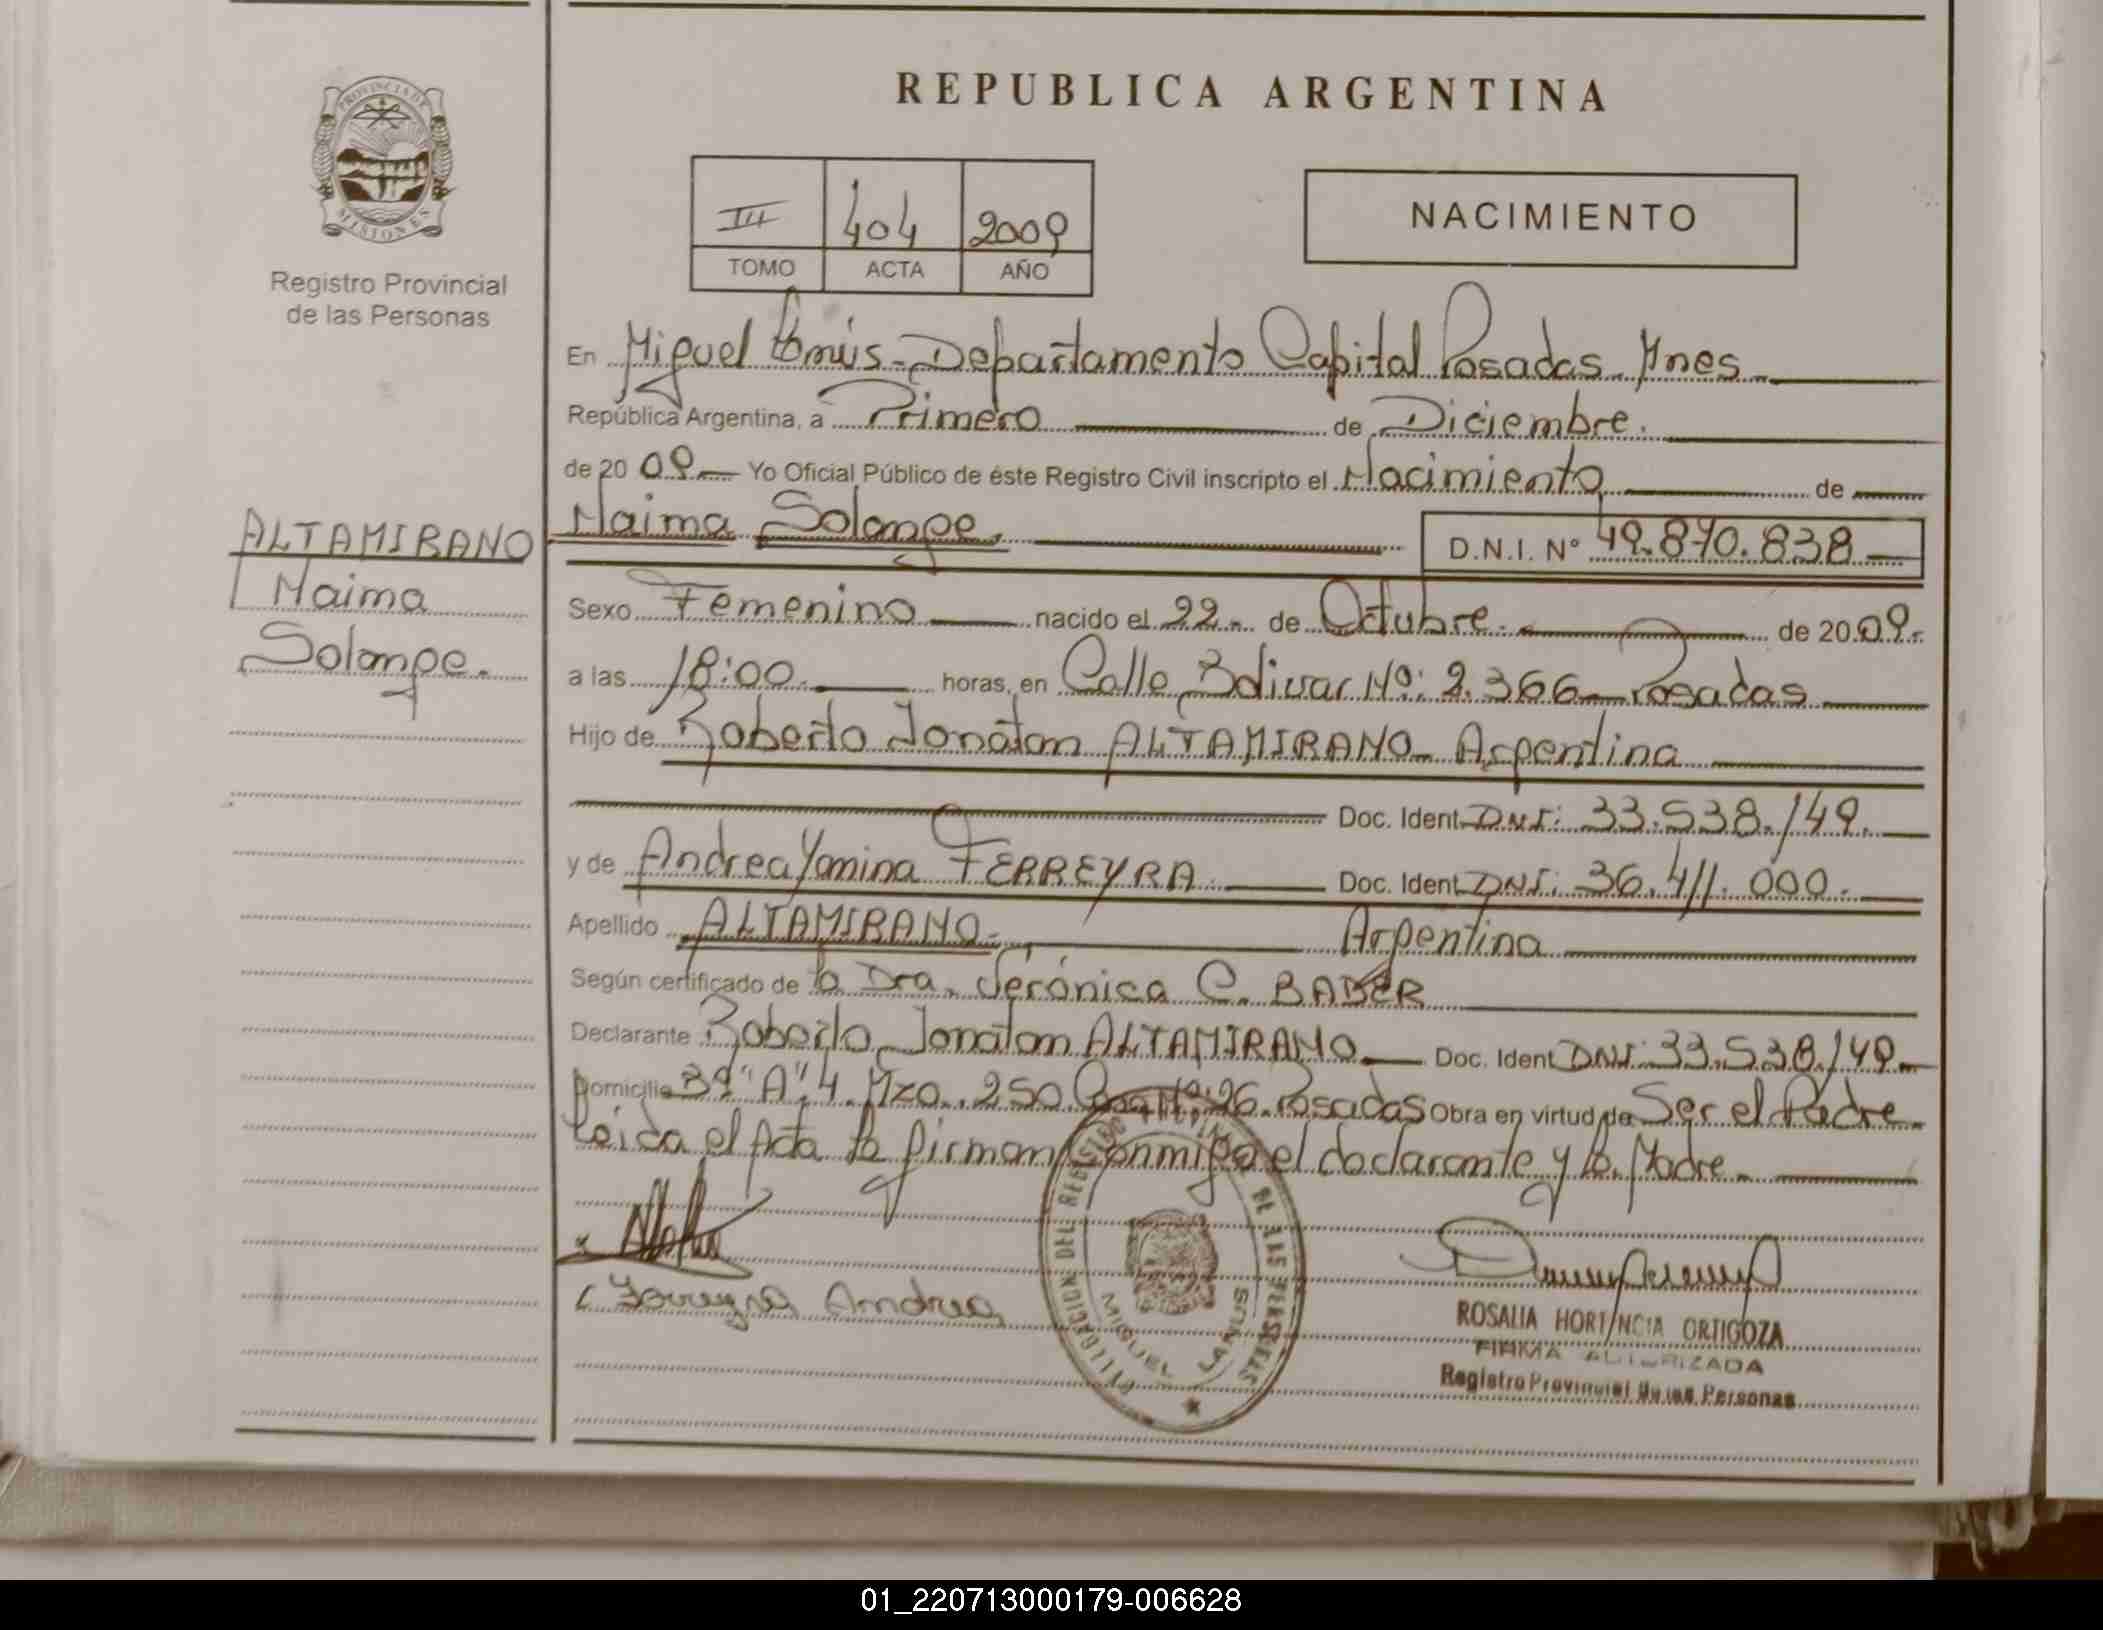 PROVINCIA DE
MISIONES
Registro Provincial
de las Personas
ALTAMIRANO
Naima
Solange.
REPUBLICA ARGENTINA
III 404 2009
TOMO ACTA AÑO
NACIMIENTO
En Miguel Lanús - Departamento Capital Posadas Mnes
República Argentina, a Primero de Diciembre.
de 20 09 Yo Oficial Público de éste Registro Civil inscripto el Nacimiento de
Naima Solange. D.N.I. N° 49.870.838
Sexo Femenino nacido el 22 de Octubre. de 20 09.
a las 18:00 horas, en Calle Bolivar Nº: 2.366 Posadas
Hijo de Roberto Jonatan ALTAMIRANO Argentina
Doc. Ident DNI: 33.538.149.
y de Andrea Yanina FERREYRA Doc. Ident DNI: 36.411.000.
Apellido ALTAMIRANO. Argentina
Según certificado de la Dra. Verónica C. BADER
Declarante Roberto Jonatan ALTAMIRANO Doc. Ident DNI: 33.538.149
Domicilio "A" 4 Mzo. 250 Casa Nº: 26. Posadas Obra en virtud de Ser el Padre
Leida el Acta la firman Conmigo el declarante y la Madre
Ferreyra Andrea
DELEGACION DEL REGISTRO DE LAS PERSONAS
MIGUEL LANUS
ROSALIA HORTENCIA ORTIGOZA
FIRMA AUTORIZADA
Registro Provincial de las Personas
01_220713000179-006628